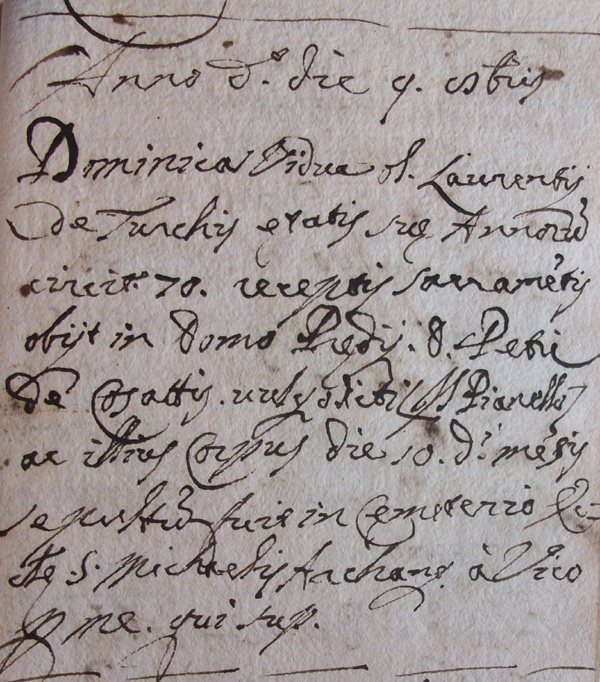 Anno d.º die 9. 8bris
Dominica Vidua ol. Laurentij
de Turchis etatis sue Annorũ
circit.r 70. receptis sacramẽtis
obijt in Domo D. Petri
de Cosattis vulgo dicti Pianello
ac illius Corpus die 10. d.i mẽsis
sepultũ fuit in Cemeterio
S. Michaelis Archang. à Vico
p me. qui sup.